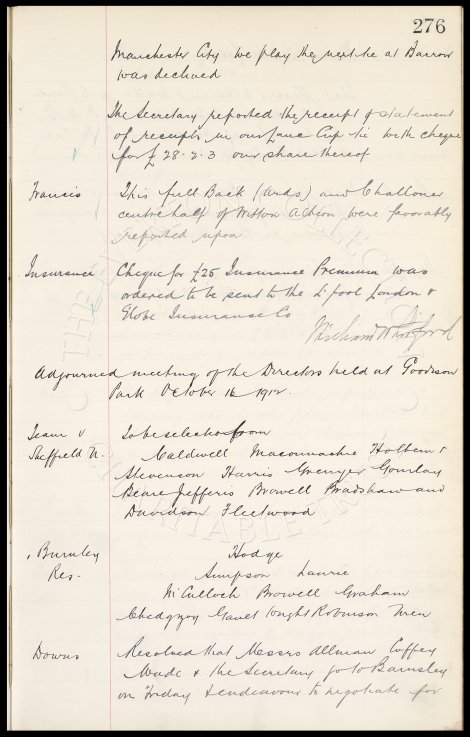 276
Manchester City we play the next tie at Barrow
was declined
The Secretary reported the receipt & statement
of receipts in our Lanc Cup tie with cheque
for £28.2.3 our share thereof
Francis This full Back (Weds) and Challoner
centre half of Witton Albion were favorably
reported upon
Insurance Cheque for £25 Insurance Premium was
ordered to be sent to the L'pool London &
Globe Insurance Co
Adjourned meeting of the Directors held at Goodison
Park October 16 1912.
Team v To be selected from
Sheffield U. Caldwell Maconnachie Holbem &
Stevenson Harris Grenyer Gourlay
Beare Jefferis Browell Bradshaw and
Davidson Fleetwood
" Burnley Hodge
Res. Simpson Laurie
McCulloch Browell Graham
Chedgzoy Gault Wright Robinson Uren
Downs Resolved that Messrs Allman Coffey
Wade & the Secretary go to Barnsley
on Friday & endeavour to negotiate for